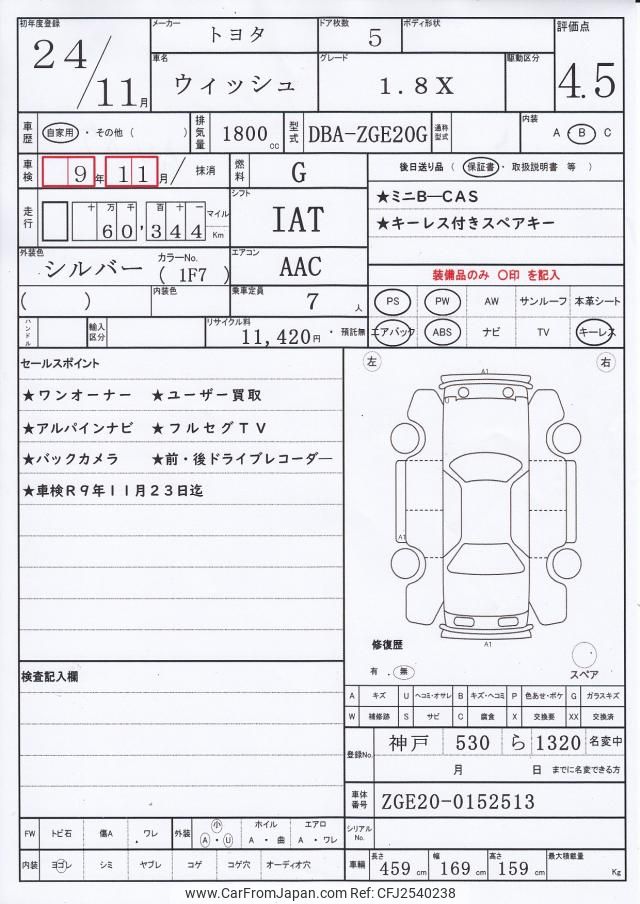 初年度登録 メーカー トヨタ ドア枚数 5 ボディ形状 評価点
24/11月 車名 ウィッシュ グレード 1.8X 駆動区分 4.5
車歴 自家用 ・ その他 ( ) 排気量 1800cc 型式 DBA-ZGE20G 通称型式 内装 A ・ B ・ C
車検 9年 11月 / 抹消 燃料 G 後日送り品 ( 保証書 ・ 取扱説明書 等 )
★ミニB—CAS
走行 十万千百十一 60,344 マイル Km シフト IAT
★キーレス付きスペアキー
外装色 シルバー カラーNo. ( 1F7 ) エアコン AAC
装備品のみ 〇印 を記入
( ) 内装色 乗車定員 7 人 PS PW AW サンルーフ 本革シート
ハンドル 輸入区分 リサイクル料 11,420円 ・ 預託無 エアバック ABS ナビ TV キーレス
セールスポイント 左 右
★ワンオーナー ★ユーザー買取
★アルパインナビ ★フルセグTV
★バックカメラ ★前・後ドライブレコーダ―
★車検R9年11月23日迄
A1
A1
A1
修復歴
有 ・ 無 スペア
検査記入欄
A キズ U ヘコミ・オサレ B キズ・ヘコミ P 色あせ・ボケ G ガラスキズ
W 補修跡 S サビ C 腐食 X 交換要 XX 交換済
登録No. 神戸 530 ら 1320 名変中
月 日 までに名変できる方
車体番号 ZGE20-0152513
FW トビ石 傷A ・ワレ 外装 小 A ・ U ホイル A ・ 曲 エアロ A ・ ワレ シリアルNo.
内装 ヨゴレ シミ ヤブレ コゲ コゲ穴 オーディオ穴 車輌 長さ 459 cm 幅 169 cm 高さ 159 cm 最大積載量 Kg
www.CarFromJapan.com Ref: CFJ2540238